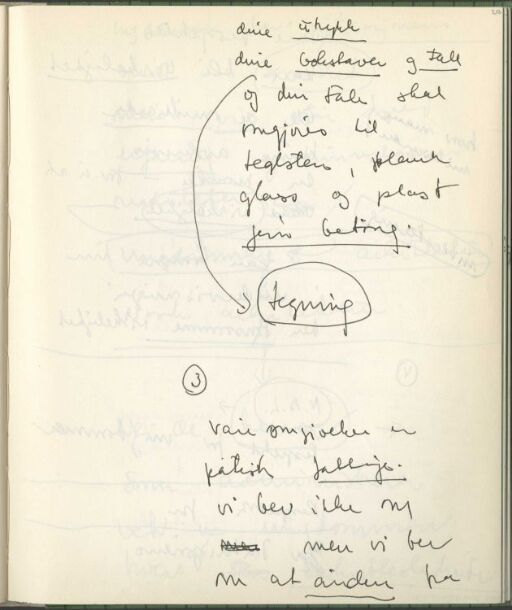 dine
dine bokstaver og tall
og din tale skal
omgjøres til
teglsten, plank
glass og plast
jern betong.
tegning
3
våre omgivelser er
faktisk fattige.
vi ber ikke om
men vi ber
om at ånden fra